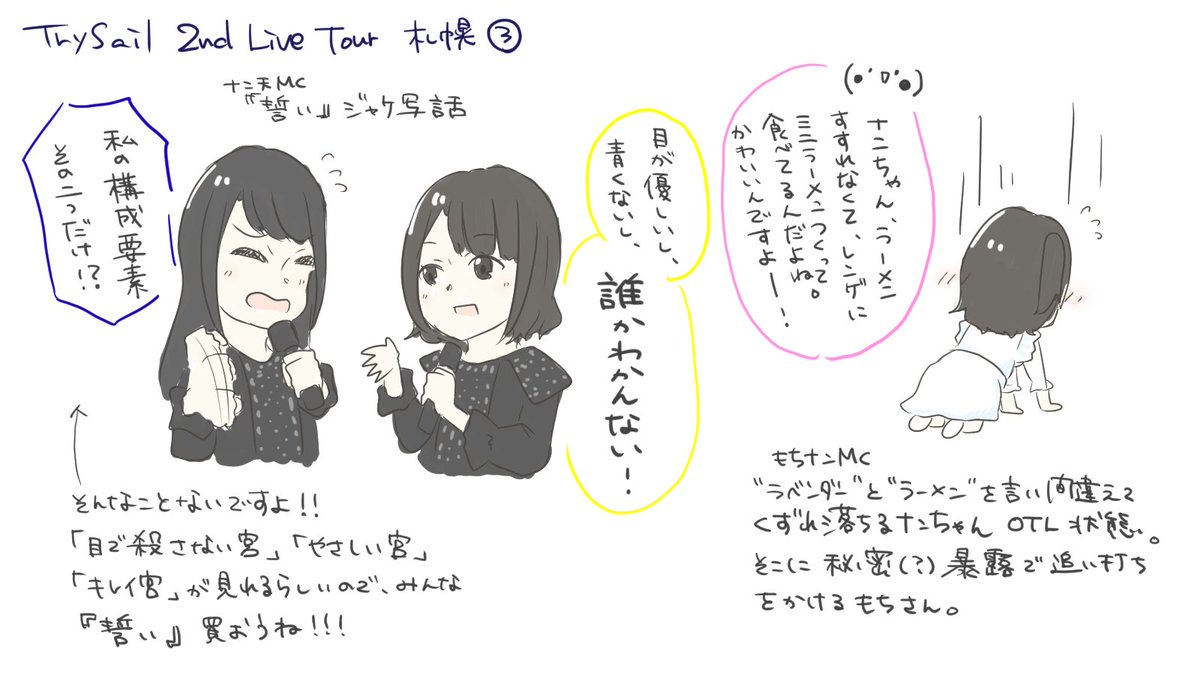 TrySail 2nd Live Tour 札幌③
ナン天MC
『誓い』ジャケ写話
私の構成要素
その二つだけ!?
目が優しいし、
青くないし、
誰かわかんない!
(●'▽'●)
ナンちゃん、ラーメン
すすれなくて、レンゲに
ミニラーメンつくって。
食べてるんだよね。
かわいいんですよーー!
そんなことないですよ!!
「目で殺さない宮」「やさしい宮」
「キレイ宮」が見れるらしいので、みんな
『誓い』買おうね!!!
もちナンMC
"ラベンダー"と"ラーメン"を言い間違えて
くずれ落ちるナンちゃん OTL 状態。
そこに秘密(?)暴露で追い打ち
をかけるもちさん。